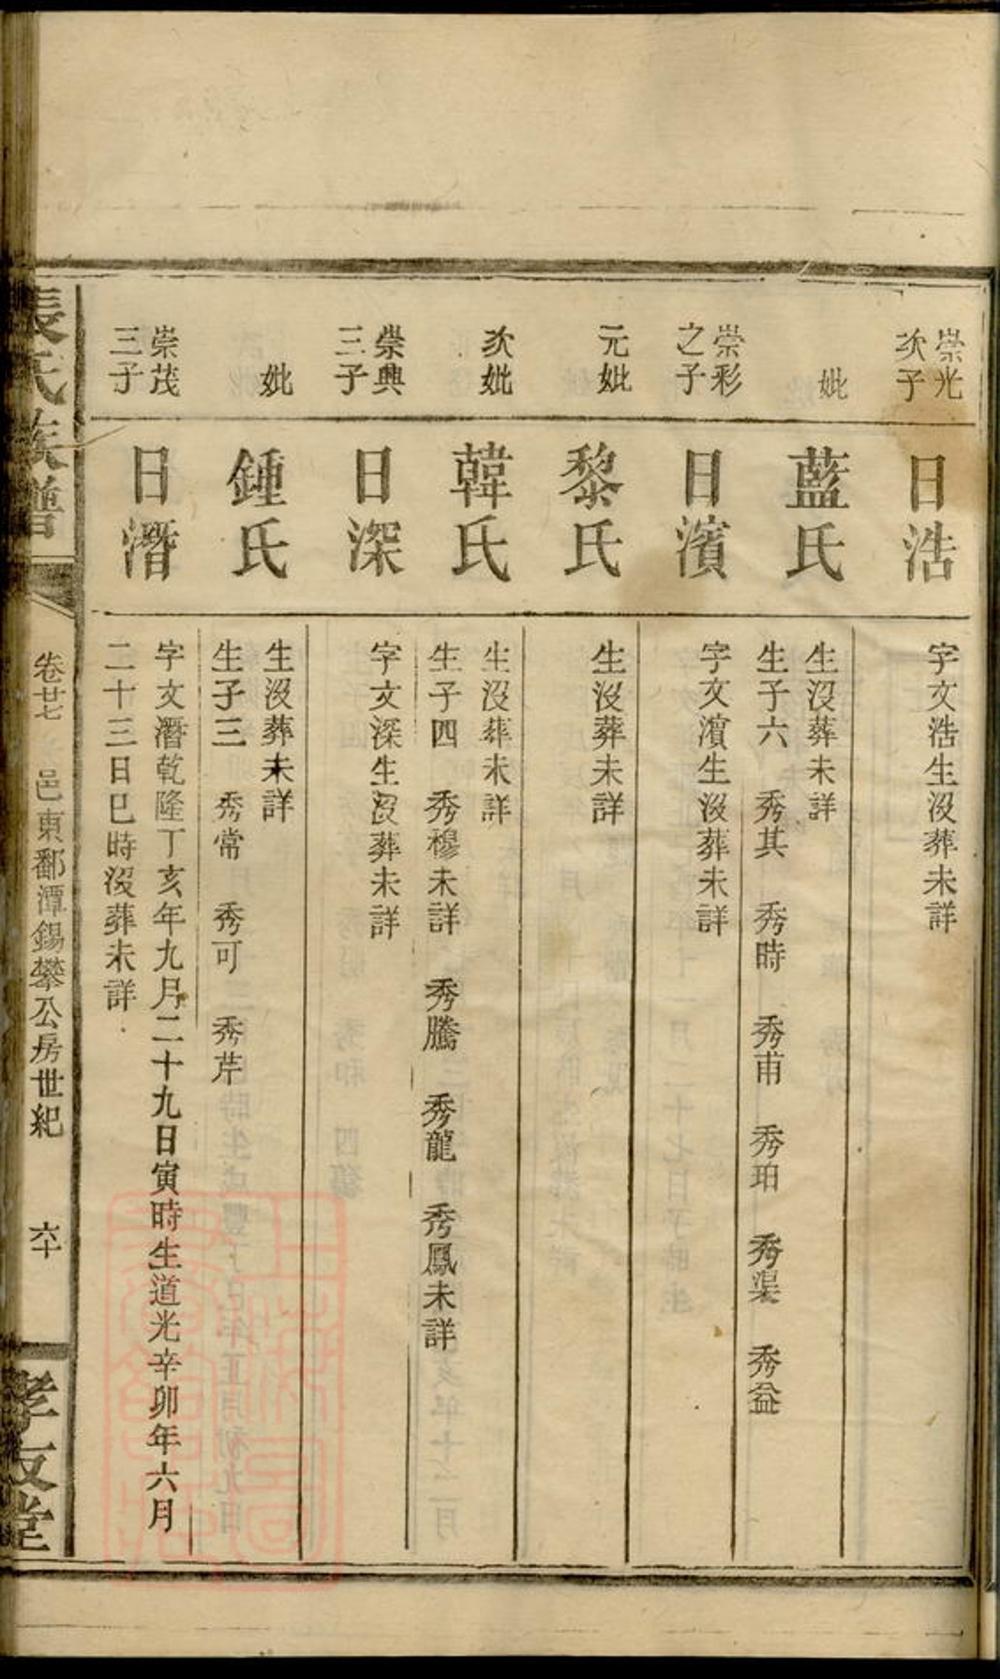 崇光
次子
日浩
字文浩生沒葬未詳
妣
藍氏
生沒葬未詳
生子六 秀其 秀時 秀甫 秀珀 秀渠 秀益
崇彩
之子
日濱
字文濱生沒葬未詳
元妣
黎氏
生沒葬未詳
次妣
韓氏
生沒葬未詳
生子四 秀穆未詳 秀騰 秀龍 秀鳳未詳
崇興
三子
日深
字文深生沒葬未詳
妣
鍾氏
生沒葬未詳
生子三 秀常 秀可 秀芹
崇茂
三子
日潛
字文潛乾隆丁亥年九月二十九日寅時生道光辛卯年六月
二十三日巳時沒葬未詳
張氏族譜
卷廿七 邑東鄱潭錫攀公房世紀 六十
孝友堂